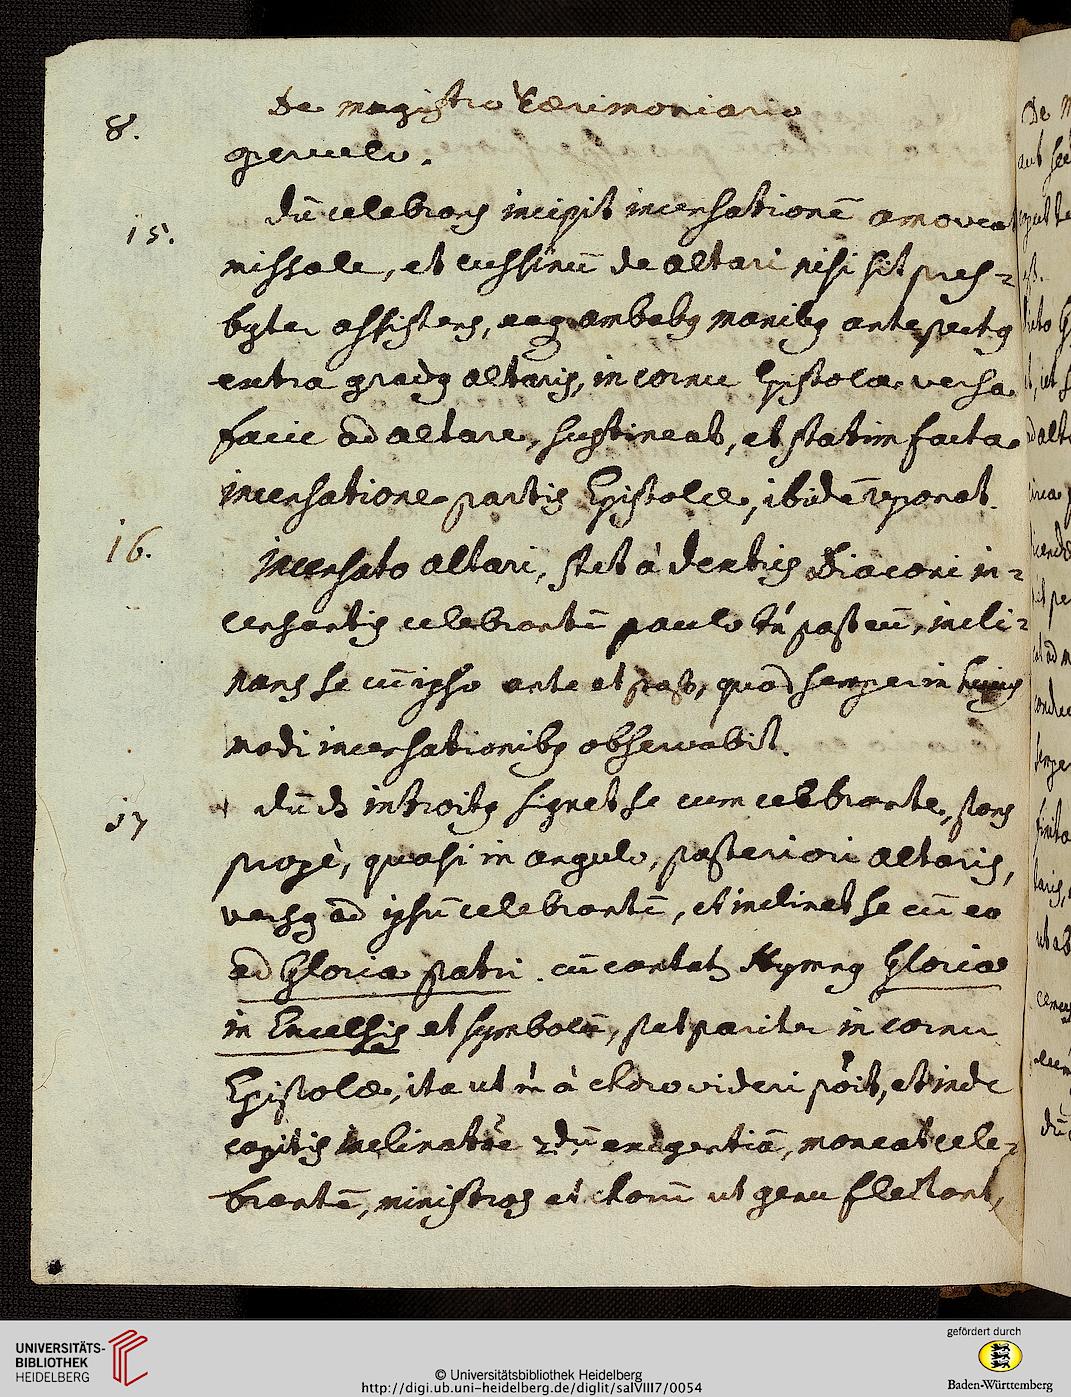 De magistro Cærimoniario
8.
periculo.
15.
dū celebrans incipit incensationē amoveat
missale, et cussinū de altari nisi sit pres-
byter assistens, eaq ambabq manibq ante pectq
extra gradq altaris, in cornu Epistolæ versa
facie ad altare, sustineat, et statim facta
incensatione partis Epistolæ, ibidē reponat.
16.
Incensato altari, stet à dextris Diaconi in-
censantis celebrantē paulo tn̄ post eū, incli-
nans se cū ipso ante et post, quod semper in huius
modi incensationibq observabit.
17
dū ds introitq signet se cum celebrante, stans
propè, quasi in angulo, posteriori altaris,
versq ad ipsū celebrantē, et inclinet se cū eo
ad Gloria patri. cū cantatr Hymnq Gloria
in Excelsis et symbolū, stet pariter in cornu
Epistolæ, ita ut à choro videri poit, et inde
capitis inclinatōe dū exigentiā, moneat cele-
brantē, ministros et chorū ut genu flectant,
UNIVERSITÄTS-
BIBLIOTHEK
HEIDELBERG
© Universitätsbibliothek Heidelberg
http://digi.ub.uni-heidelberg.de/diglit/salVIII7/0054
gefördert durch
Baden-Württemberg